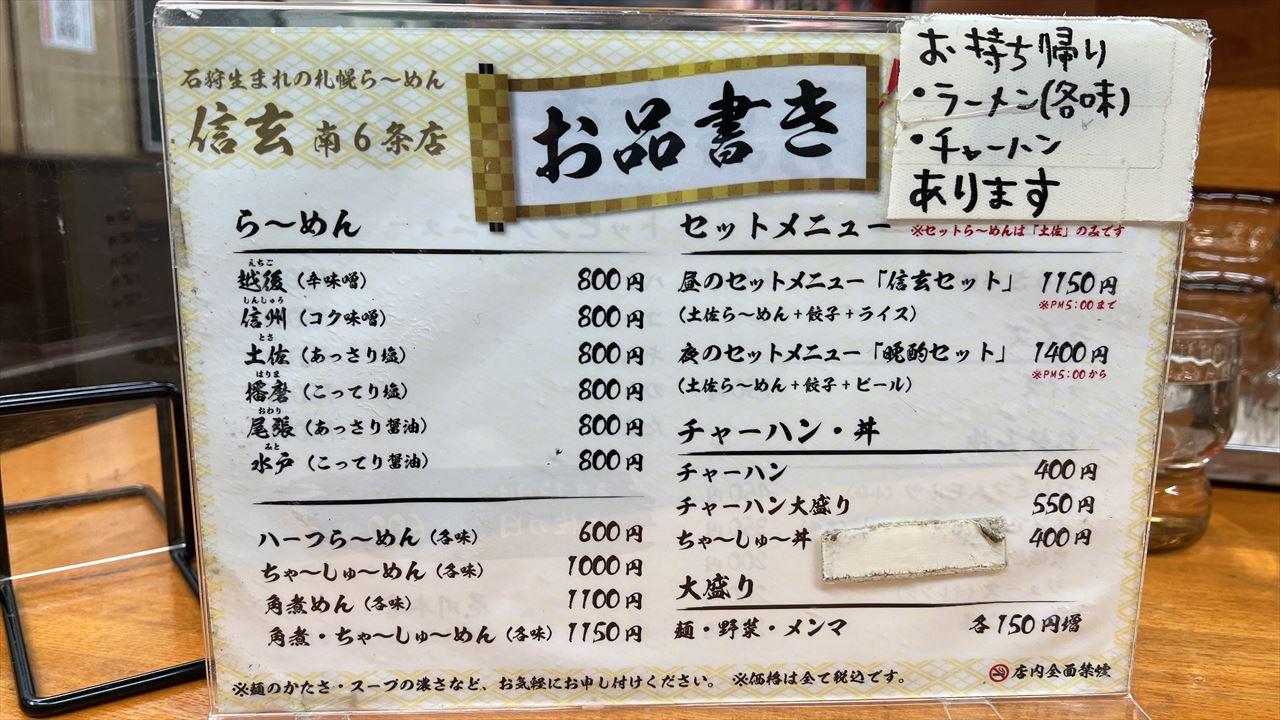 石狩生まれの札幌ら〜めん
信玄 南6条店
お品書き
お持ち帰り
・ラーメン(各味)
・チャーハン
あります
ら〜めん
えちご
越後（辛味噌） 800円
しんしゅう
信州（コク味噌） 800円
とさ
土佐（あっさり塩） 800円
はりま
播磨（こってり塩） 800円
おわり
尾張（あっさり醤油） 800円
みと
水戸（こってり醤油） 800円
ハーフら〜めん（各味） 600円
ちゃ〜しゅ〜めん（各味） 1000円
角煮めん（各味） 1100円
角煮・ちゃ〜しゅ〜めん（各味） 1150円
セットメニュー ※セットら〜めんは「土佐」のみです
昼のセットメニュー「信玄セット」 1150円
※PM5:00まで
（土佐ら〜めん＋餃子＋ライス）
夜のセットメニュー「晩酌セット」 1400円
※PM5:00から
（土佐ら〜めん＋餃子＋ビール）
チャーハン・丼
チャーハン 400円
チャーハン大盛り 550円
ちゃ〜しゅ〜丼 400円
大盛り
麺・野菜・メンマ 各150円増
店内全面禁煙
※麺のかたさ・スープの濃さなど、お気軽にお申し付けください。 ※価格は全て税込です。